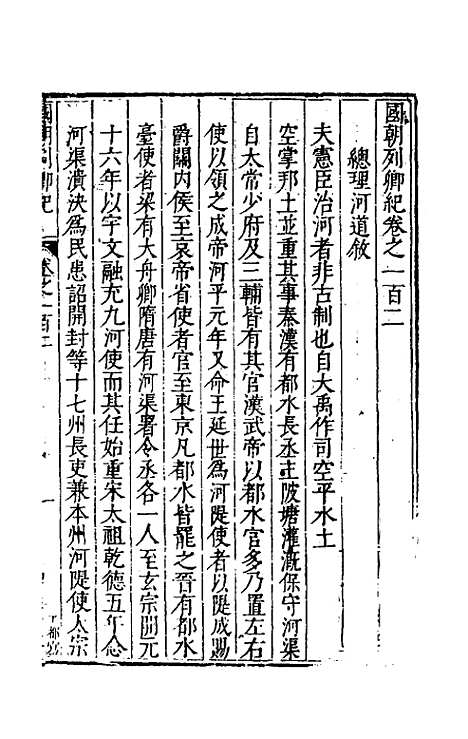 國朝列卿紀卷之一百二
總理河道敘
夫憲臣治河者非古制也自大禹作司空平水土
空掌邦土並重其事秦漢有都水長丞主陂塘灌溉保守河渠
自太常少府及三輔皆有其官漢武帝以都水官多乃置左右
使以領之成帝河平元年又命王延世為河隄使者以隄成賜
爵關內侯至哀帝省使者官至東京凡都水皆罷之晉有都水
臺使者梁有大舟卿隋唐有河渠署令丞各一人至玄宗開元
十六年以宇文融充九河使而其任始重宋太祖乾德五年念
河渠潰決為民患詔開封等十七州長吏兼本州河隄使太宗
國朝列卿紀
卷之一百二
一